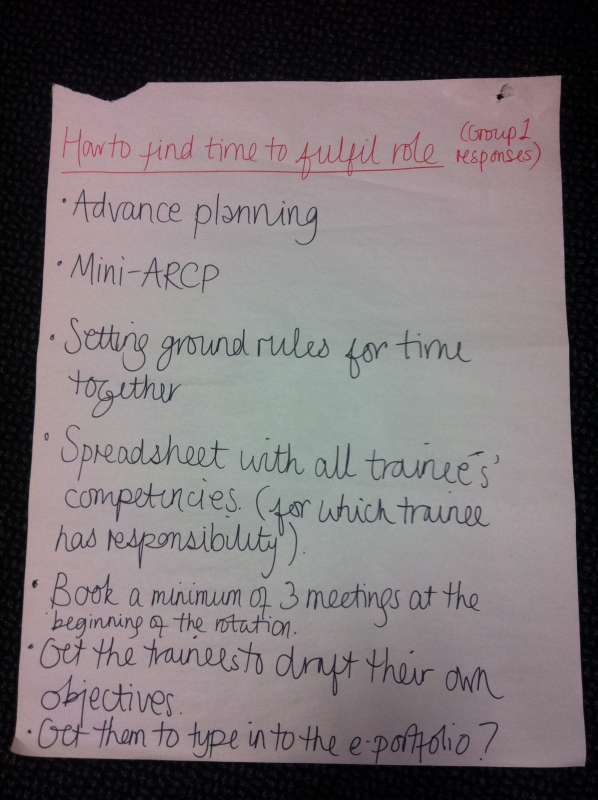 How to find time to fulfil role (Group 1
responses)
• Advance planning
• Mini-ARCP
• Setting ground rules for time
together
• Spreadsheet with all trainees'
competencies. (for which trainee
has responsibility).
• Book a minimum of 3 meetings at the
beginning of the rotation.
• Get the trainees to draft their own
objectives.
• Get them to type in to the e-portfolio?